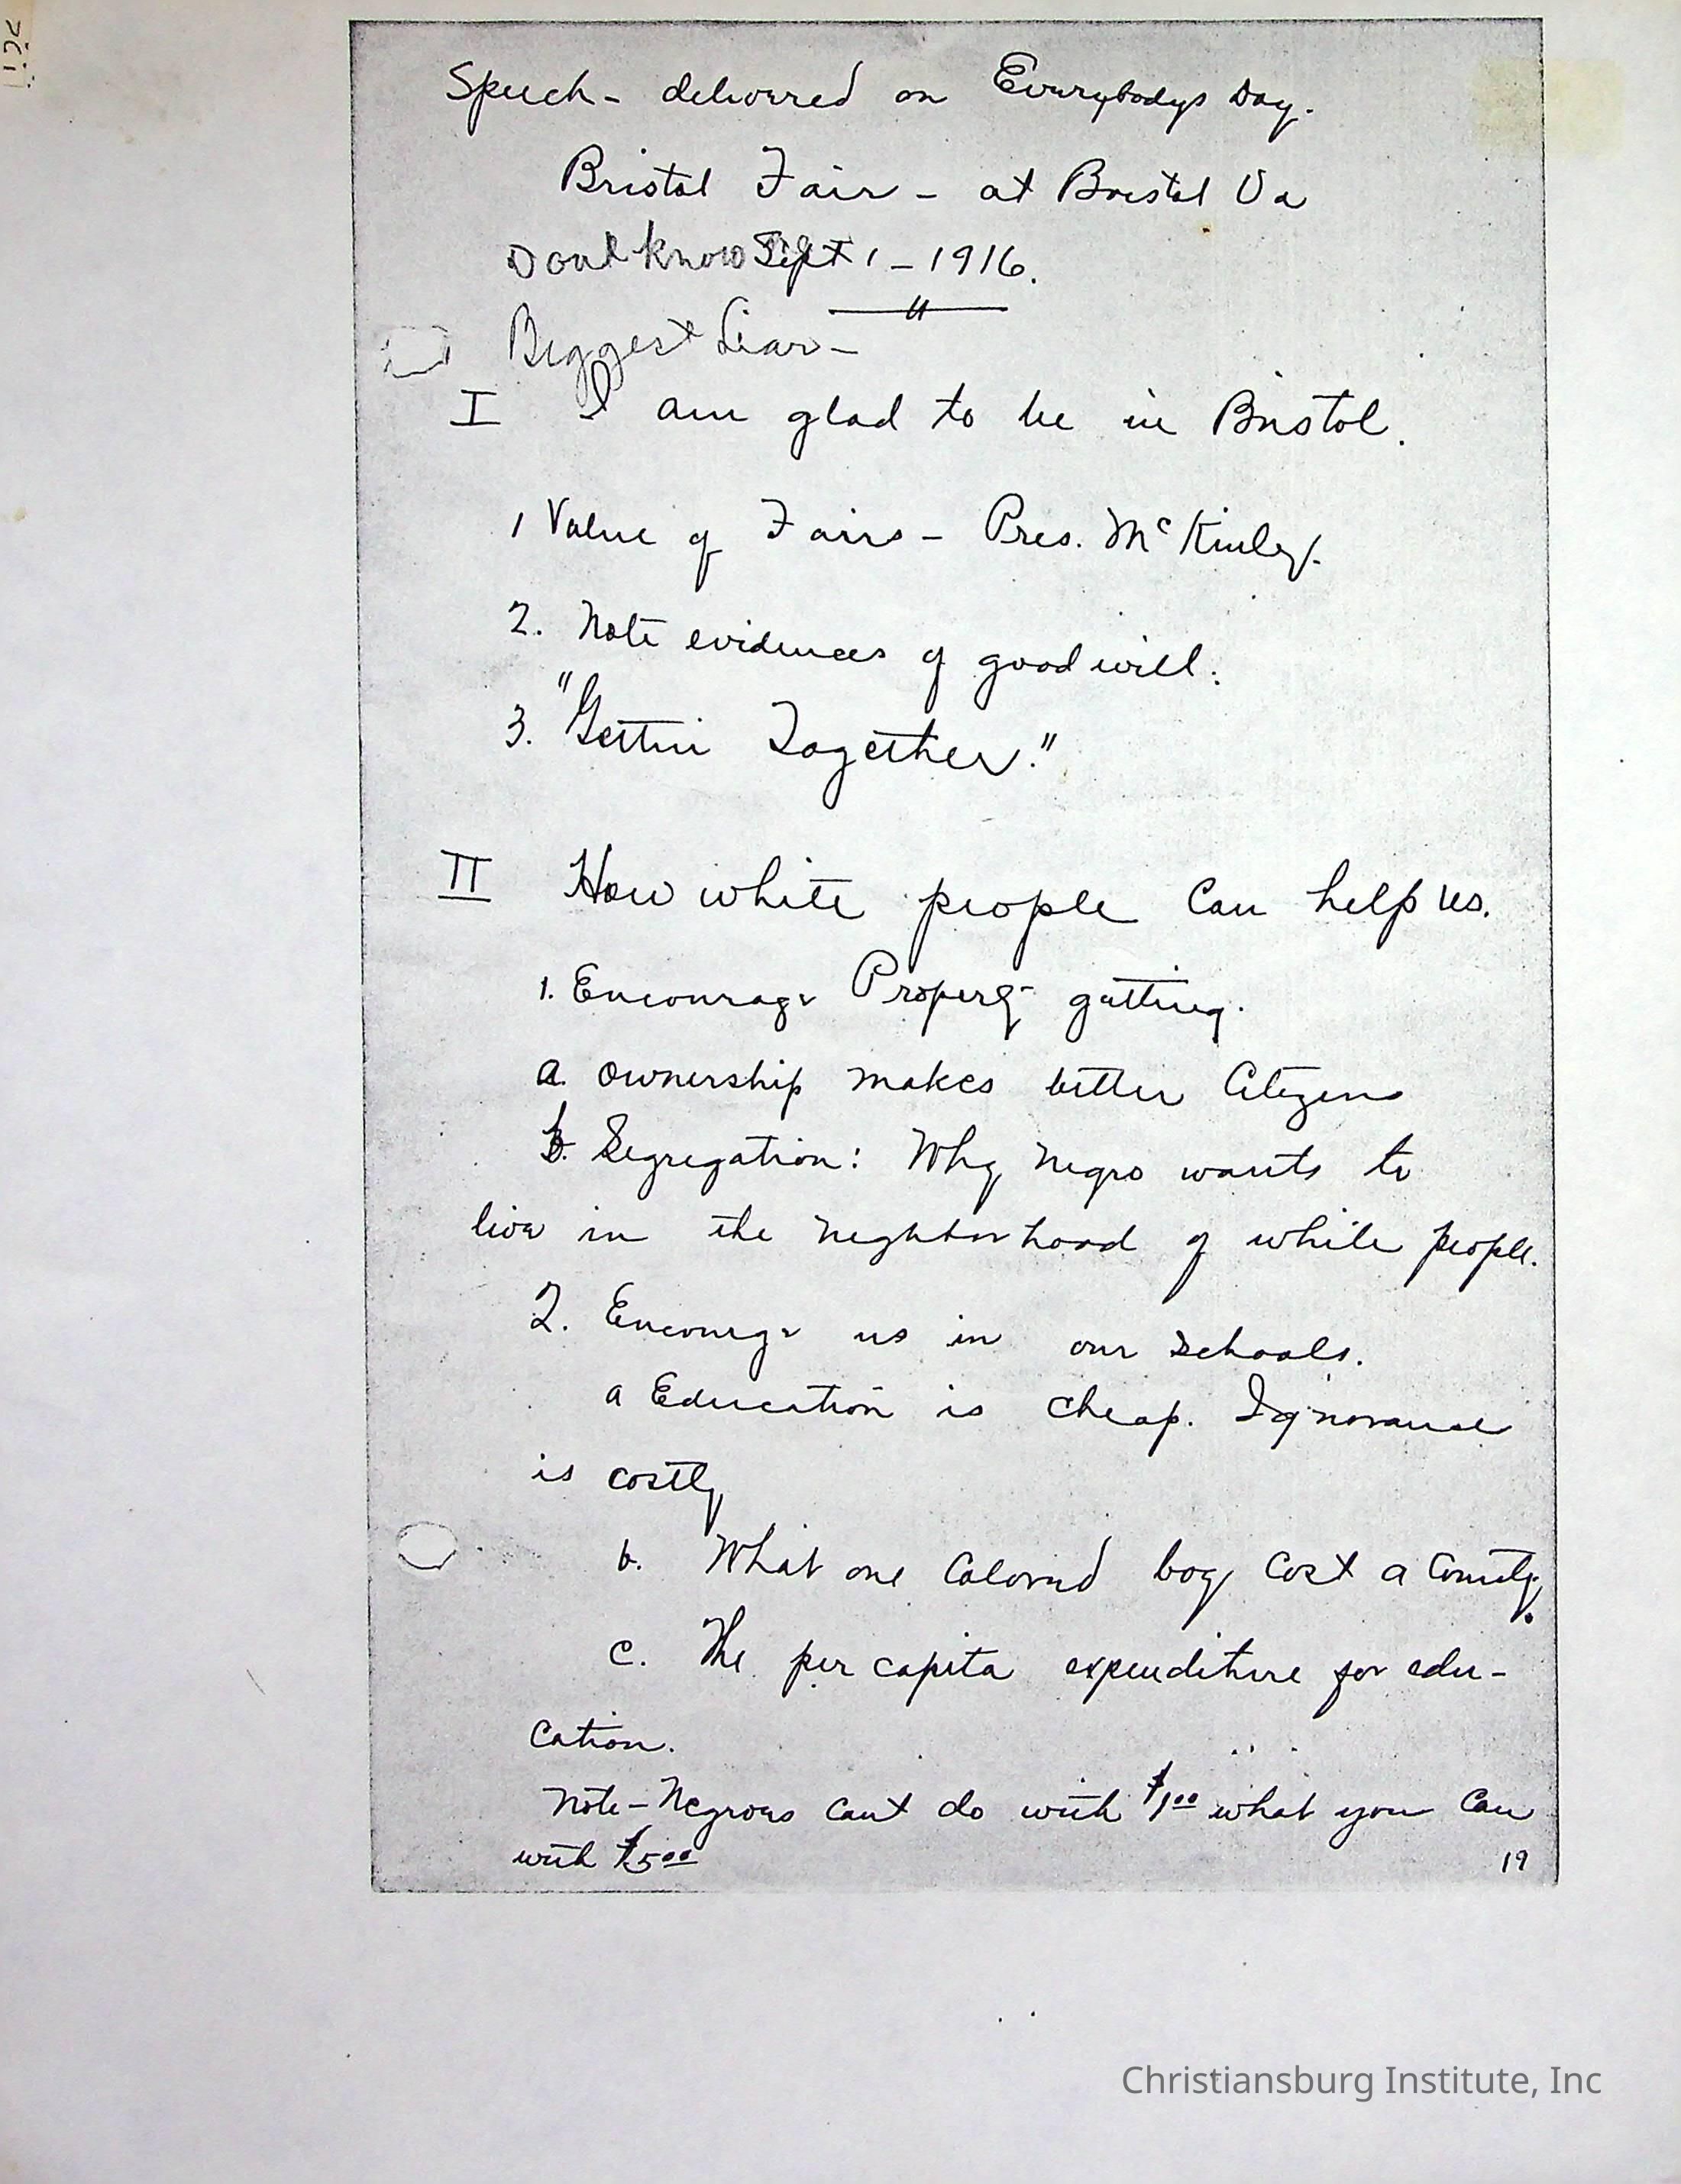 Speech - delivered on Everybodys Day.
Bristol Fair - at Bristol Va
Dont know Sept 1 - 1916.
Biggest Liar -
I I am glad to be in Bristol.
1 Value of Fairs - Pres. McKinley.
2. Note evidences of good will.
3. "Gettin Together."
II How white people can help us.
1. Encourage Property getting.
a. Ownership makes better Citizens
b. Segregation: Why Negro wants to
live in the neighborhood of white people.
2. Encourge us in our schools.
a Education is cheap. Ignorance
is costly
b. What one Colored boy cost a County.
c. The per capita expenditure for edu-
cation.
Note - Negroes cant do with $1.00 what you can
with $5.00
19
Christiansburg Institute, Inc